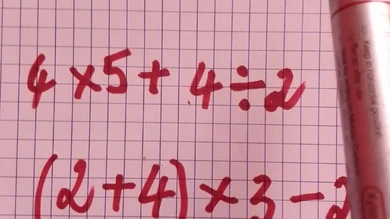 4 × 5 + 4 ÷ 2
(2 + 4) × 3 - 2